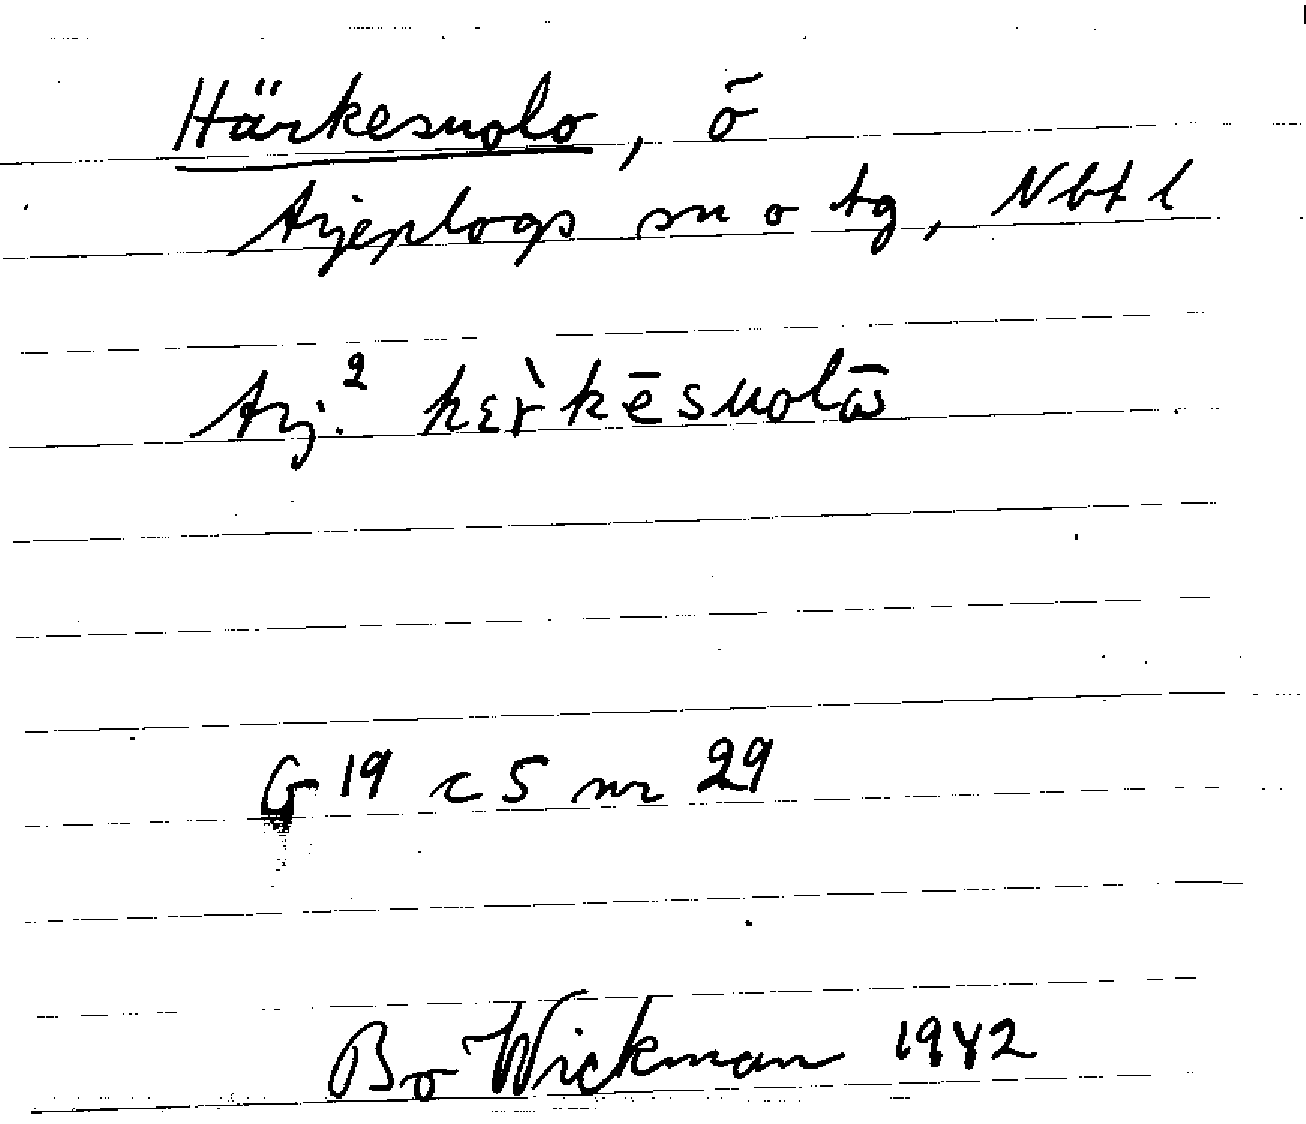 Härkesuolo, ö
Arjeplogs sn o tg, Nbt l
Arj.² hɛr̀kēsuolɷ̄
G 19 c 5 nr 29
Bo Wickman 1942